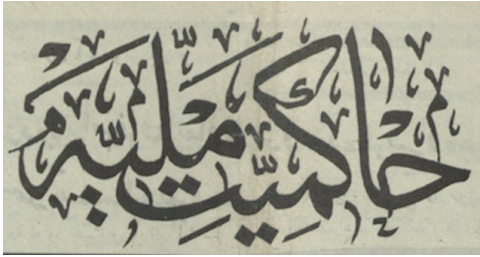 حاكميت مليه